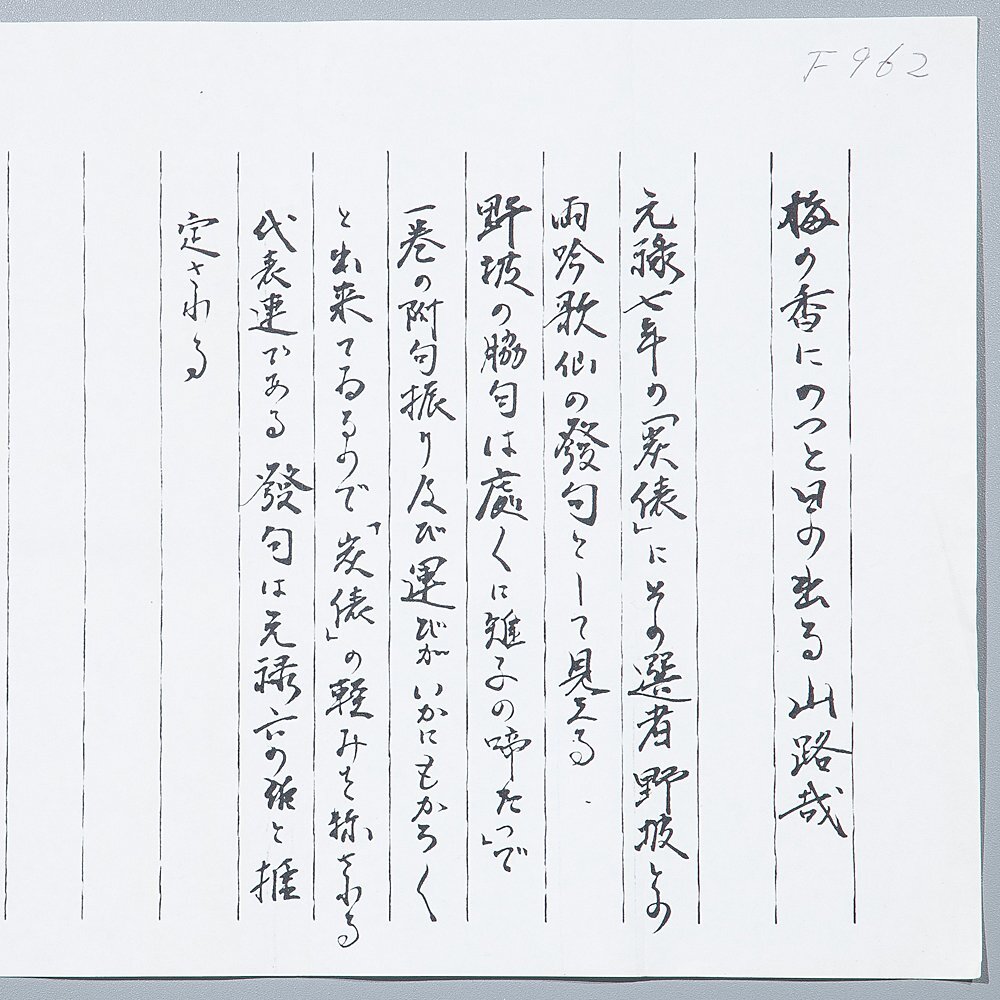 F962
梅の香にのつと日の出る山路哉
元禄七年の「炭俵」にその選者野坡との
両吟歌仙の發句として見える.
野坡の脇句は處〱に雉子の啼たつ」で
一巻の附句振り及び運びがいかにもかろく
と出来てゐるので「炭俵」の軽みを称される
代表連である 發句は元禄六の作と推
定される